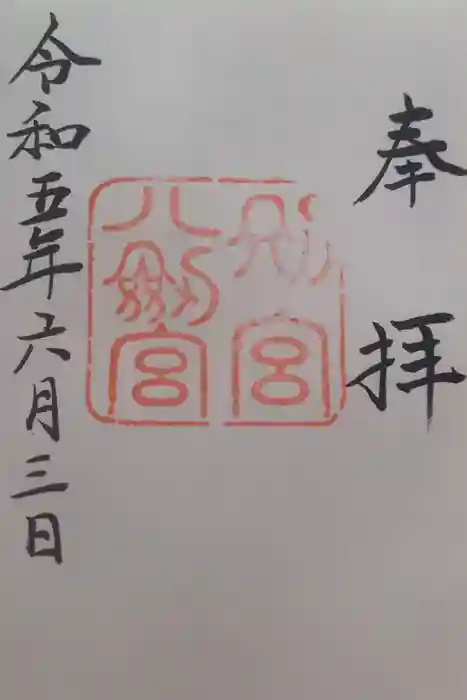 奉拝
八劔宮
令和五年六月三日